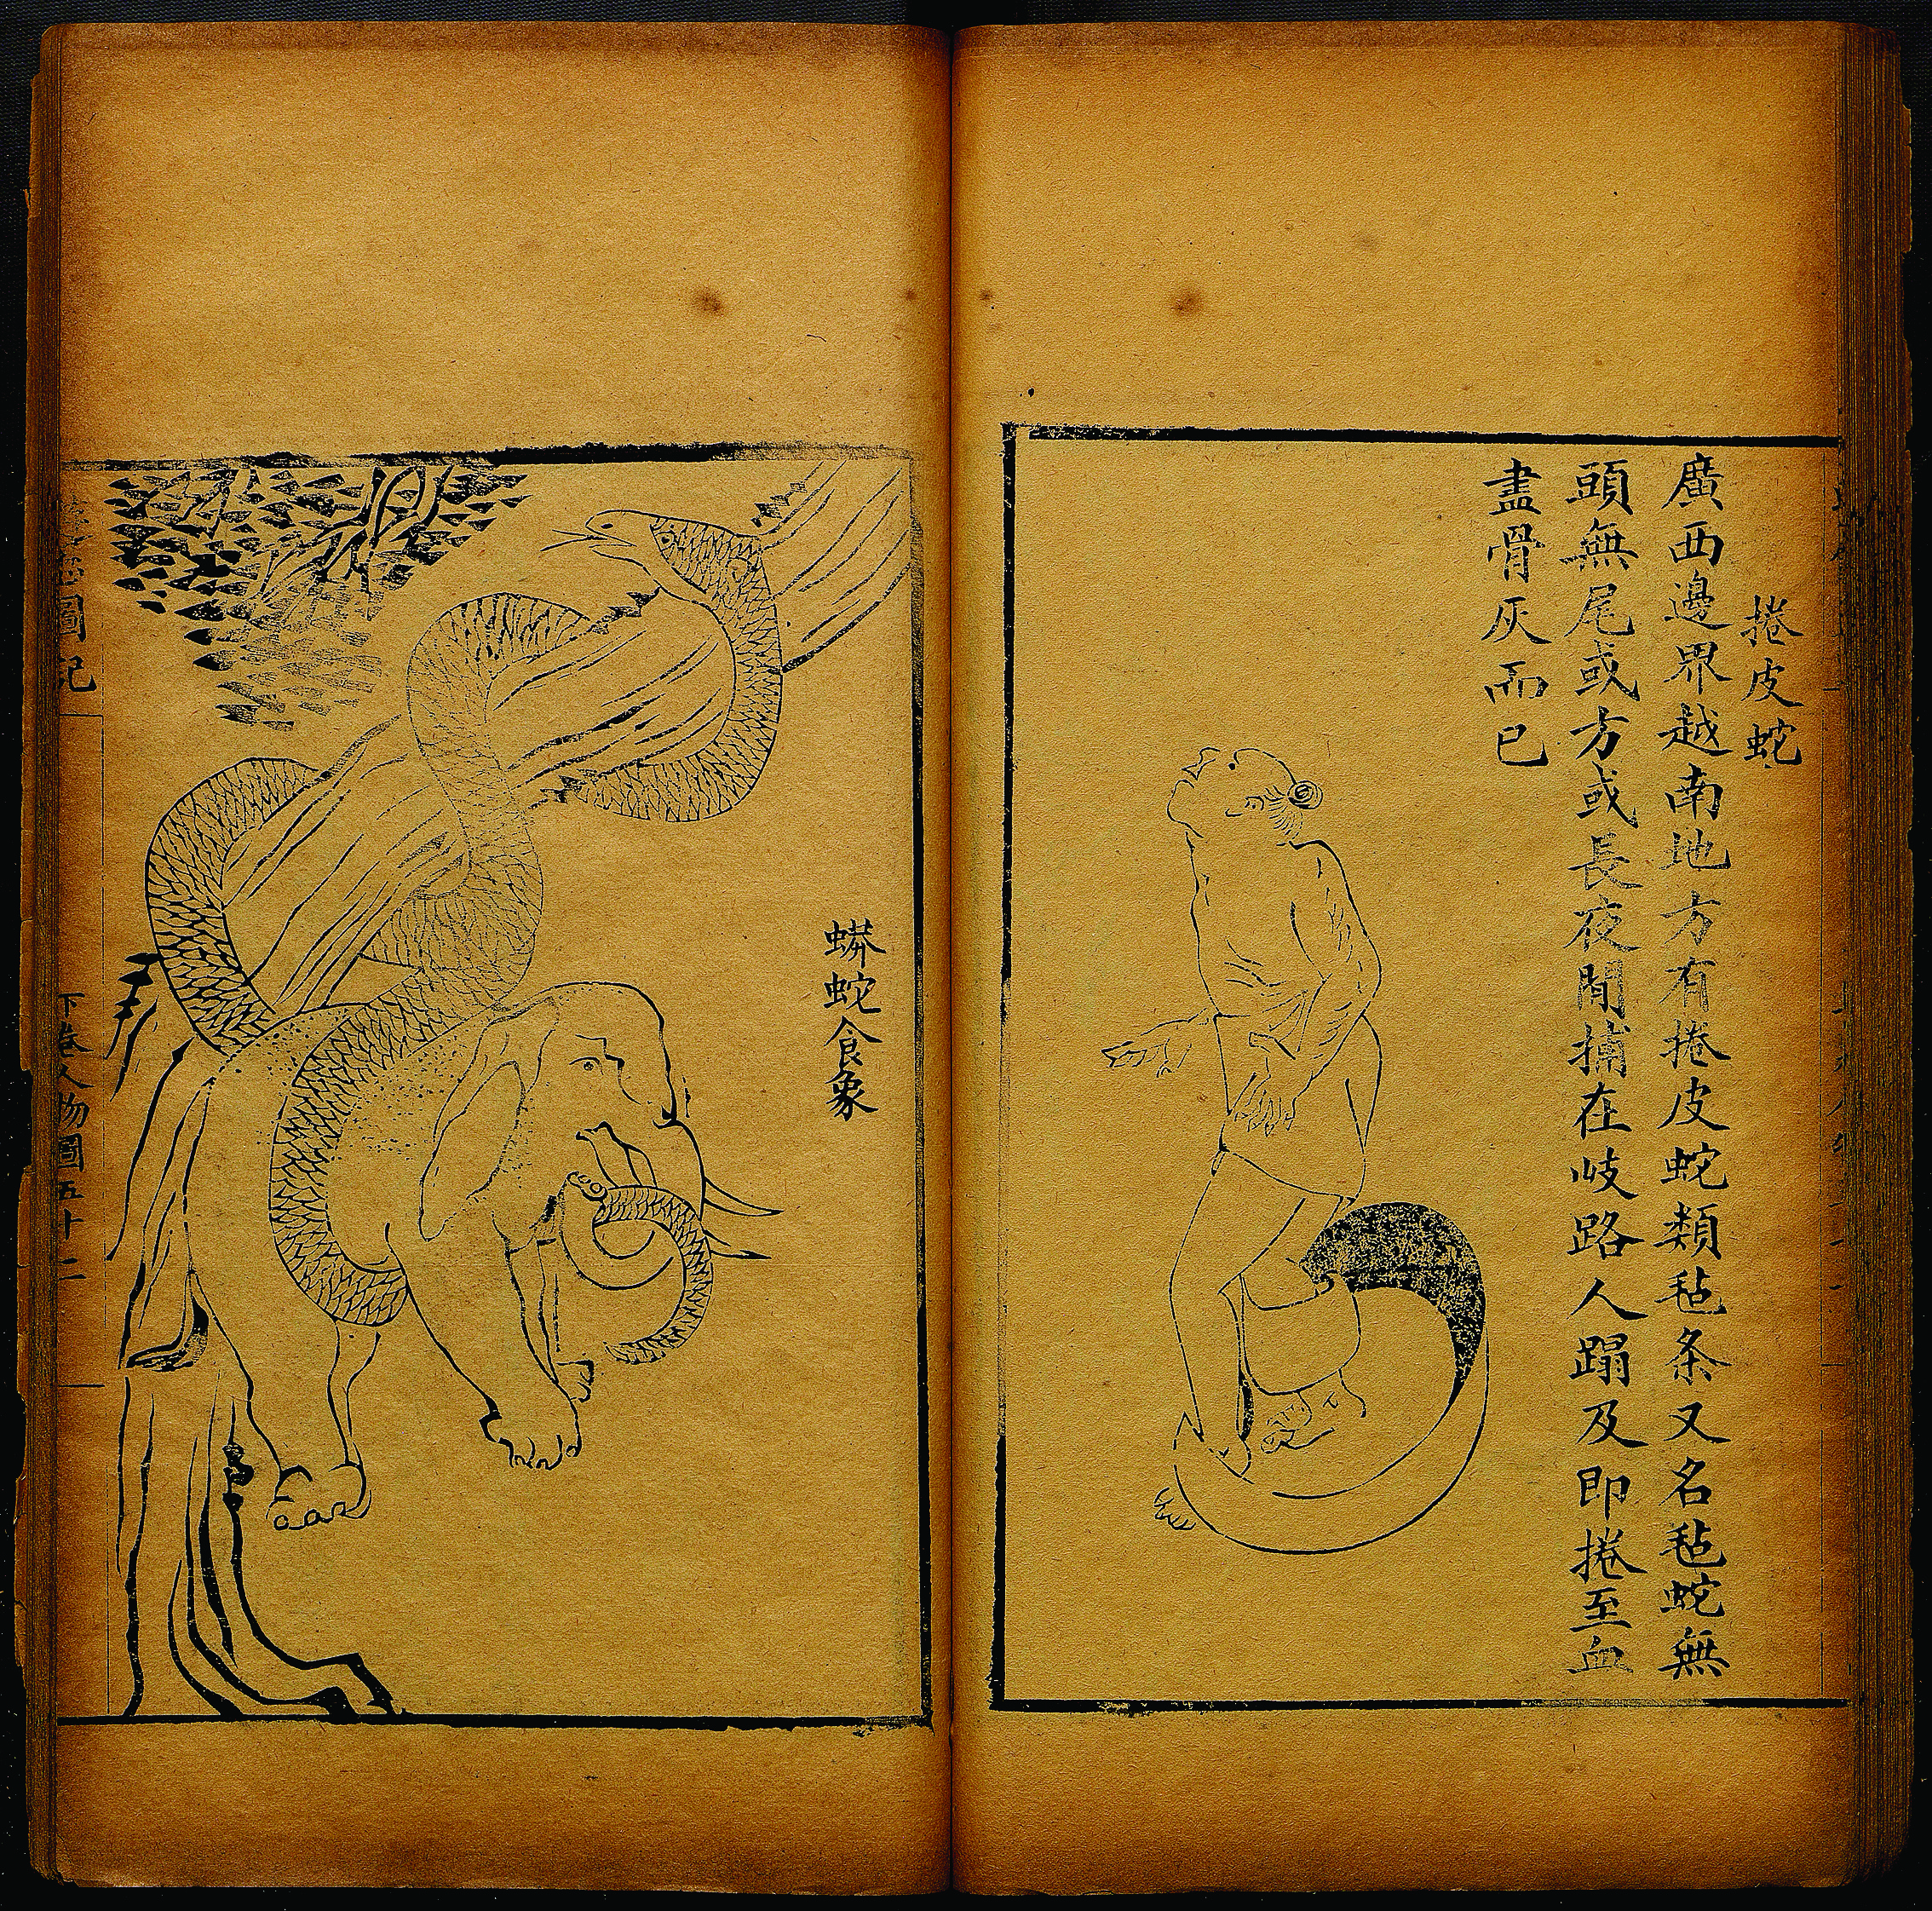 捲皮蛇
廣西邊界越南地方有捲皮蛇類毡条又名毡蛇無
頭無尾或方或長夜間捕在岐路人蹋及即捲至血
盡骨灰而已
蟒蛇食象
圖記
下卷人物圖五十二